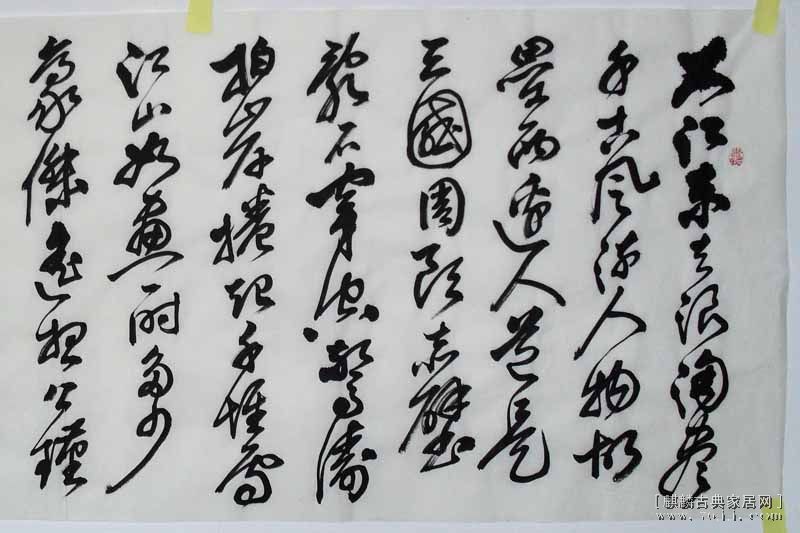 大江東去浪淘盡
千古風流人物故
壘西邊人道是
三國周郎赤壁
亂石穿空驚濤
拍岸捲起千堆雪
江山如畫一時多少
豪傑遙想公瑾
[麒麟古典家居网]